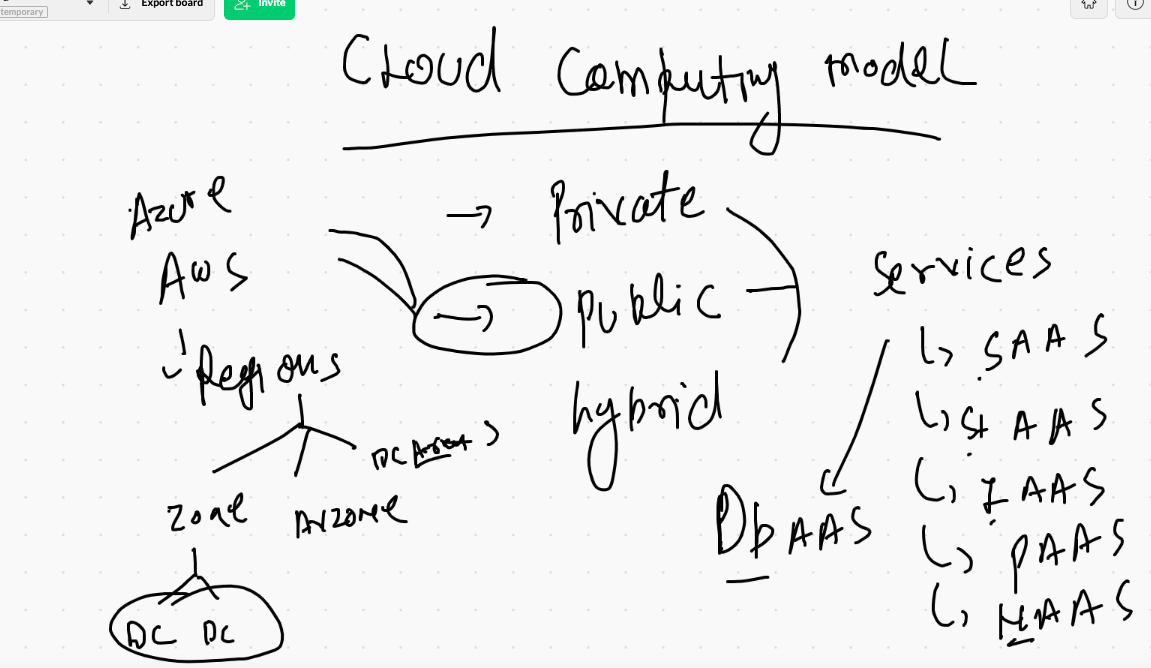 temporary
Export board
Invite
Cloud Computing model
Azure
AWS
Regions
Zone
DC DC
→ Private
→ Public
hybrid
Services
SAAS
StAAS
IAAS
PAAS
NAAS
DbAAS